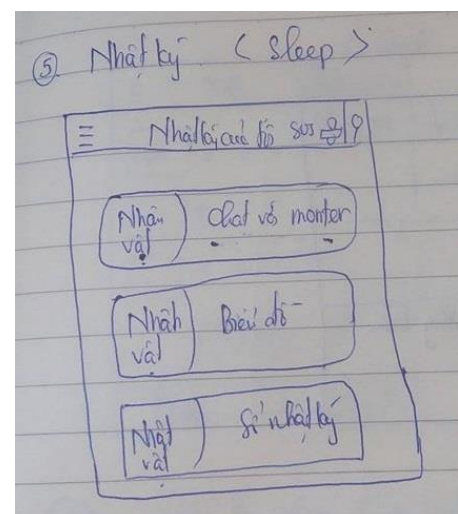 ⑤ Nhật ký < Sleep >
Nhật ký SOS
Nhân vật
Chat với monter
Nhân vật
Biểu đồ
Nhật vật
Sổ nhật ký